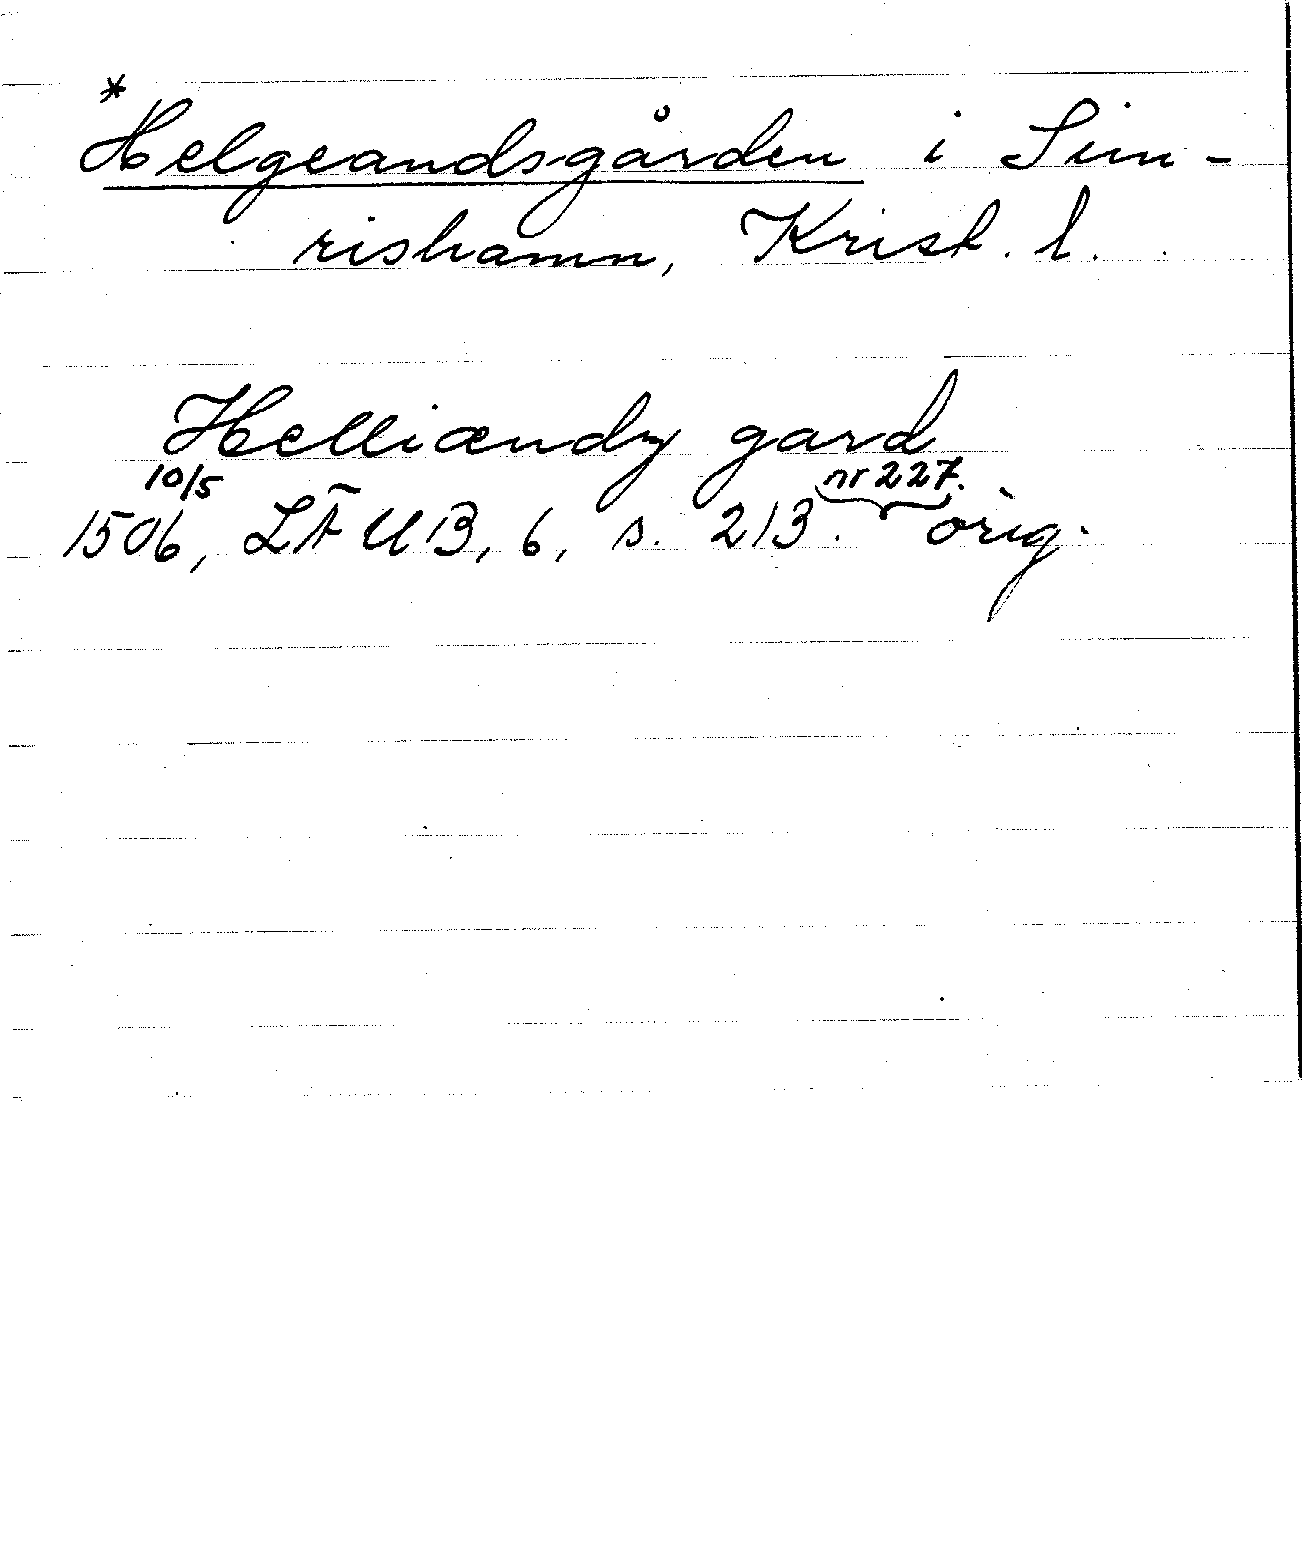 *
Helgeandsgården i Sim-
rishamn, Krist. l.
Helliændz gard
10/5 nr 227.
1506, LÄUB, 6, s. 213. orig.